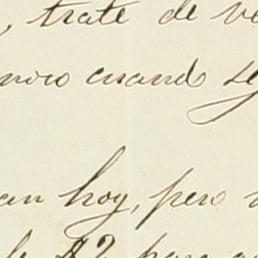 , trate de ve
noro cuando se
an hoy, pero
$2 para